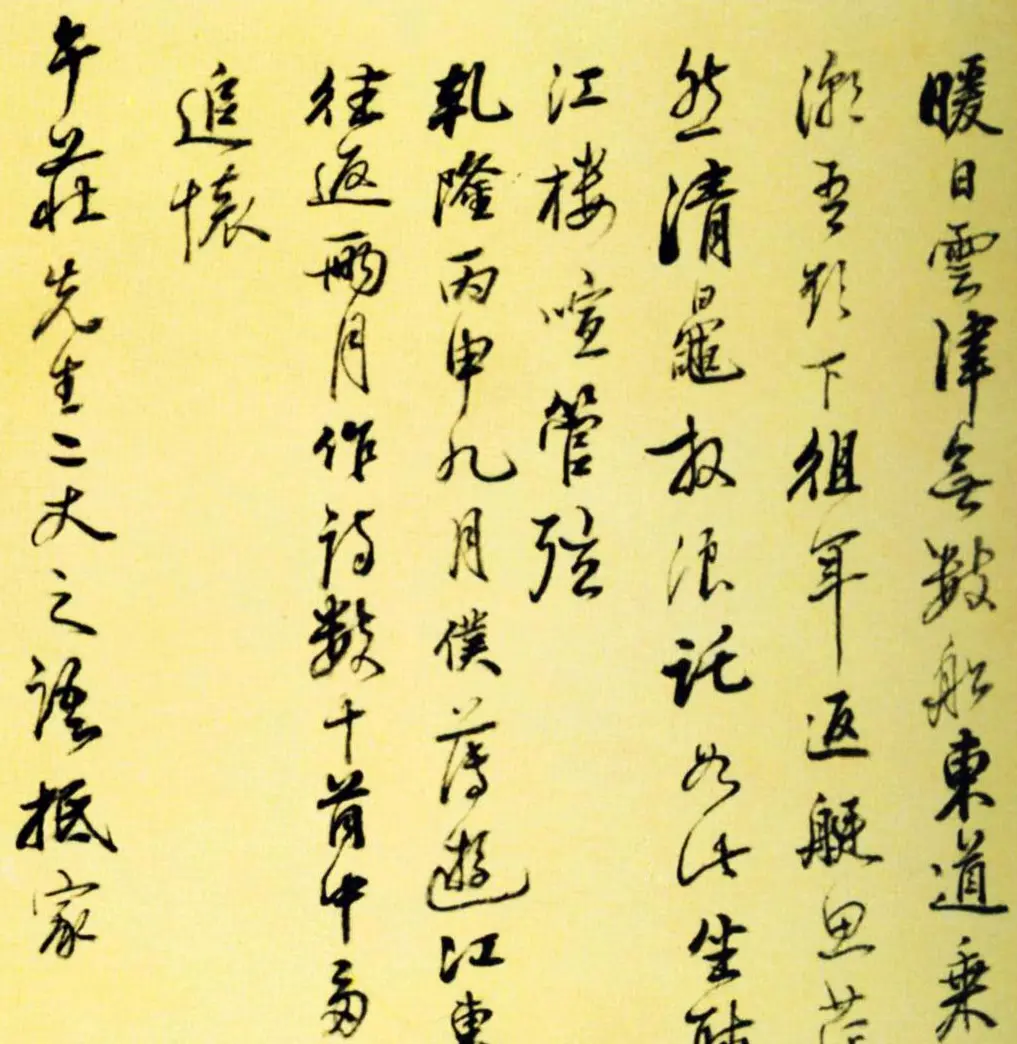 暖日雲津無數船東道乘
潮吾欲下徂年返艇思
然清鼂放浪託如此坐
江樓喧管弦
乹隆丙申九月僕薄遊江東
往返兩月作詩數十首中多
追懷
午莊先生二丈之語抵家